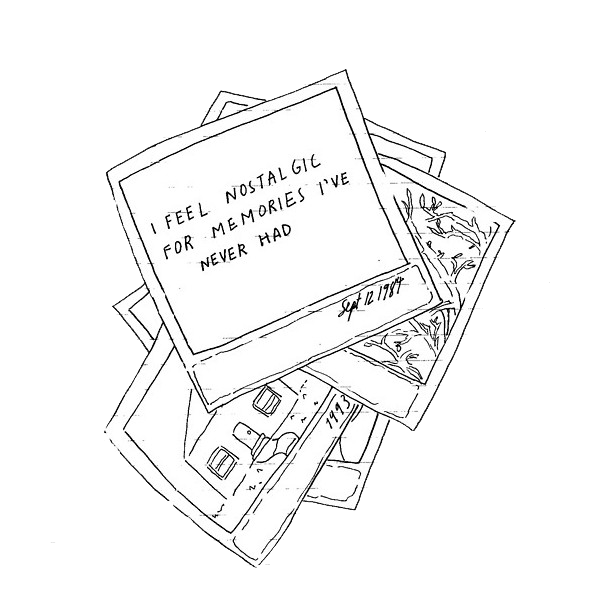 I FEEL NOSTALGIC
FOR MEMORIES I'VE
NEVER HAD
Sept 12 1984
1993